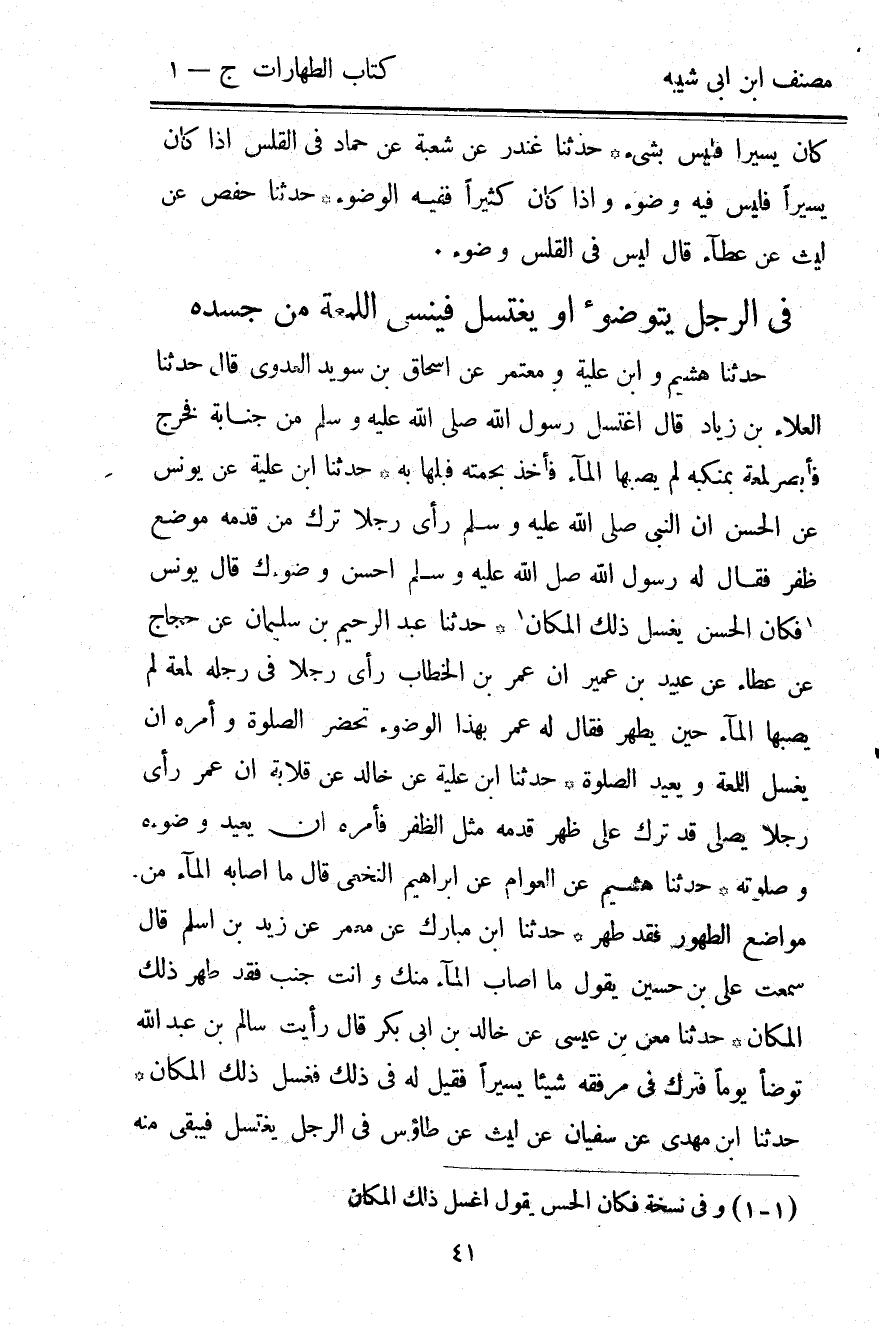 مصنف ابن ابى شيبه كتاب الطهارات ج – ١
كان يسيرا فليس بشىء * حدثنا غندر عن شعبة عن حماد فى القلس اذا كان
يسيراً فليس فيه وضوء و اذا كان كثيراً ففيه الوضوء * حدثنا حفص عن
ليث عن عطآء قال ليس فى القلس وضوء ٠
فى الرجل يتوضوء او يغتسل فينسى اللمعة من جسده
حدثنا هشيم و ابن علية و معتمر عن اسحاق بن سويد العدوى قال حدثنا
العلاء بن زياد قال اغتسل رسول الله صلى الله عليه و سلم من جنابة فخرج
فأبصر لمعة بمنكبه لم يصبها المآء فأخذ بجمته فبلها به * حدثنا ابن علية عن يونس
عن الحسن ان النبى صلى الله عليه و سلم رأى رجلا ترك من قدمه موضع
ظفر فقال له رسول الله صل الله عليه و سلم احسن وضوءك قال يونس
١فكان الحسن يغسل ذلك المكان١ * حدثنا عبد الرحيم بن سليمان عن حجاج
عن عطاء عن عبيد بن عمير ان عمر بن الخطاب رأى رجلا فى رجله لمعة لم
يصبها المآء حين يطهر فقال له عمر بهذا الوضوء تحضر الصلوة و أمره ان
يغسل اللمعة و يعيد الصلوة * حدثنا ابن علية عن خالد عن قلابة ان عمر رأى
رجلا يصلى قد ترك على ظهر قدمه مثل الظفر فأمره ان يعيد وضوءه
و صلوته * حدثنا هشيم عن العوام عن ابراهيم النخعى قال ما اصابه المآء من
مواضع الطهور فقد طهر * حدثنا ابن مبارك عن معمر عن زيد بن اسلم قال
سمعت على بن حسين يقول ما اصاب المآء منك و انت جنب فقد طهر ذلك
المكان * حدثنا معن بن عيسى عن خالد بن ابى بكر قال رأيت سالم بن عبد الله
توضأ يوماً فترك فى مرفقه شيئا يسيراً فقيل له فى ذلك فغسل ذلك المكان *
حدثنا ابن مهدى عن سفيان عن ليث عن طاؤس فى الرجل يغتسل فيبقى منه
(١-١) و فى نسخة فكان الحسن يقول اغسل ذالك المكان
٤١